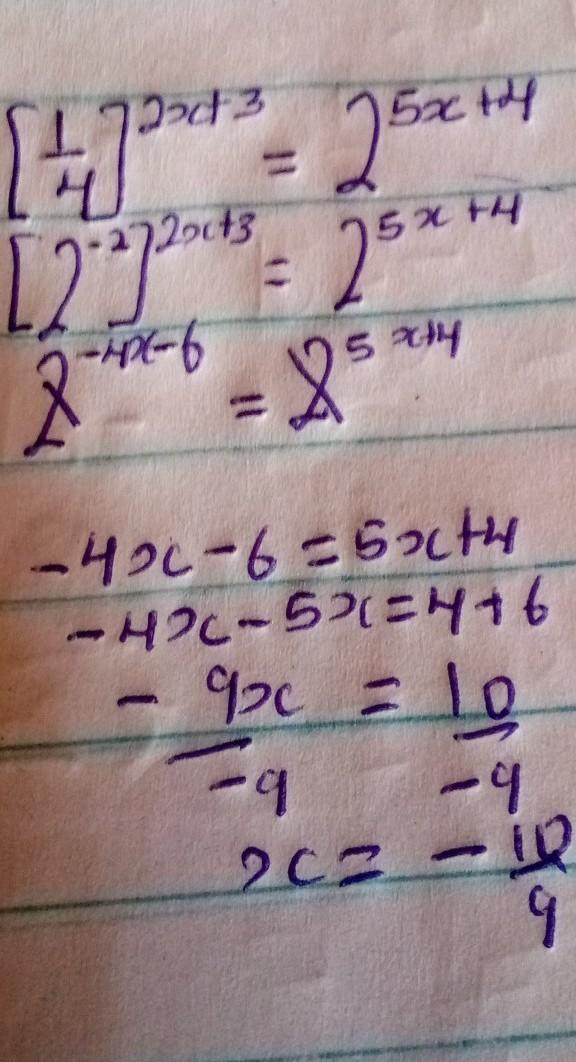 [1/4]^2x+3 = 2^5x+4
[2^-2]^2x+3 = 2^5x+4
2^-4x-6 = 2^5x+4
-4x-6=5x+4
-4x-5x=4+6
-9x/-9 = 10/-9
x= -10/9